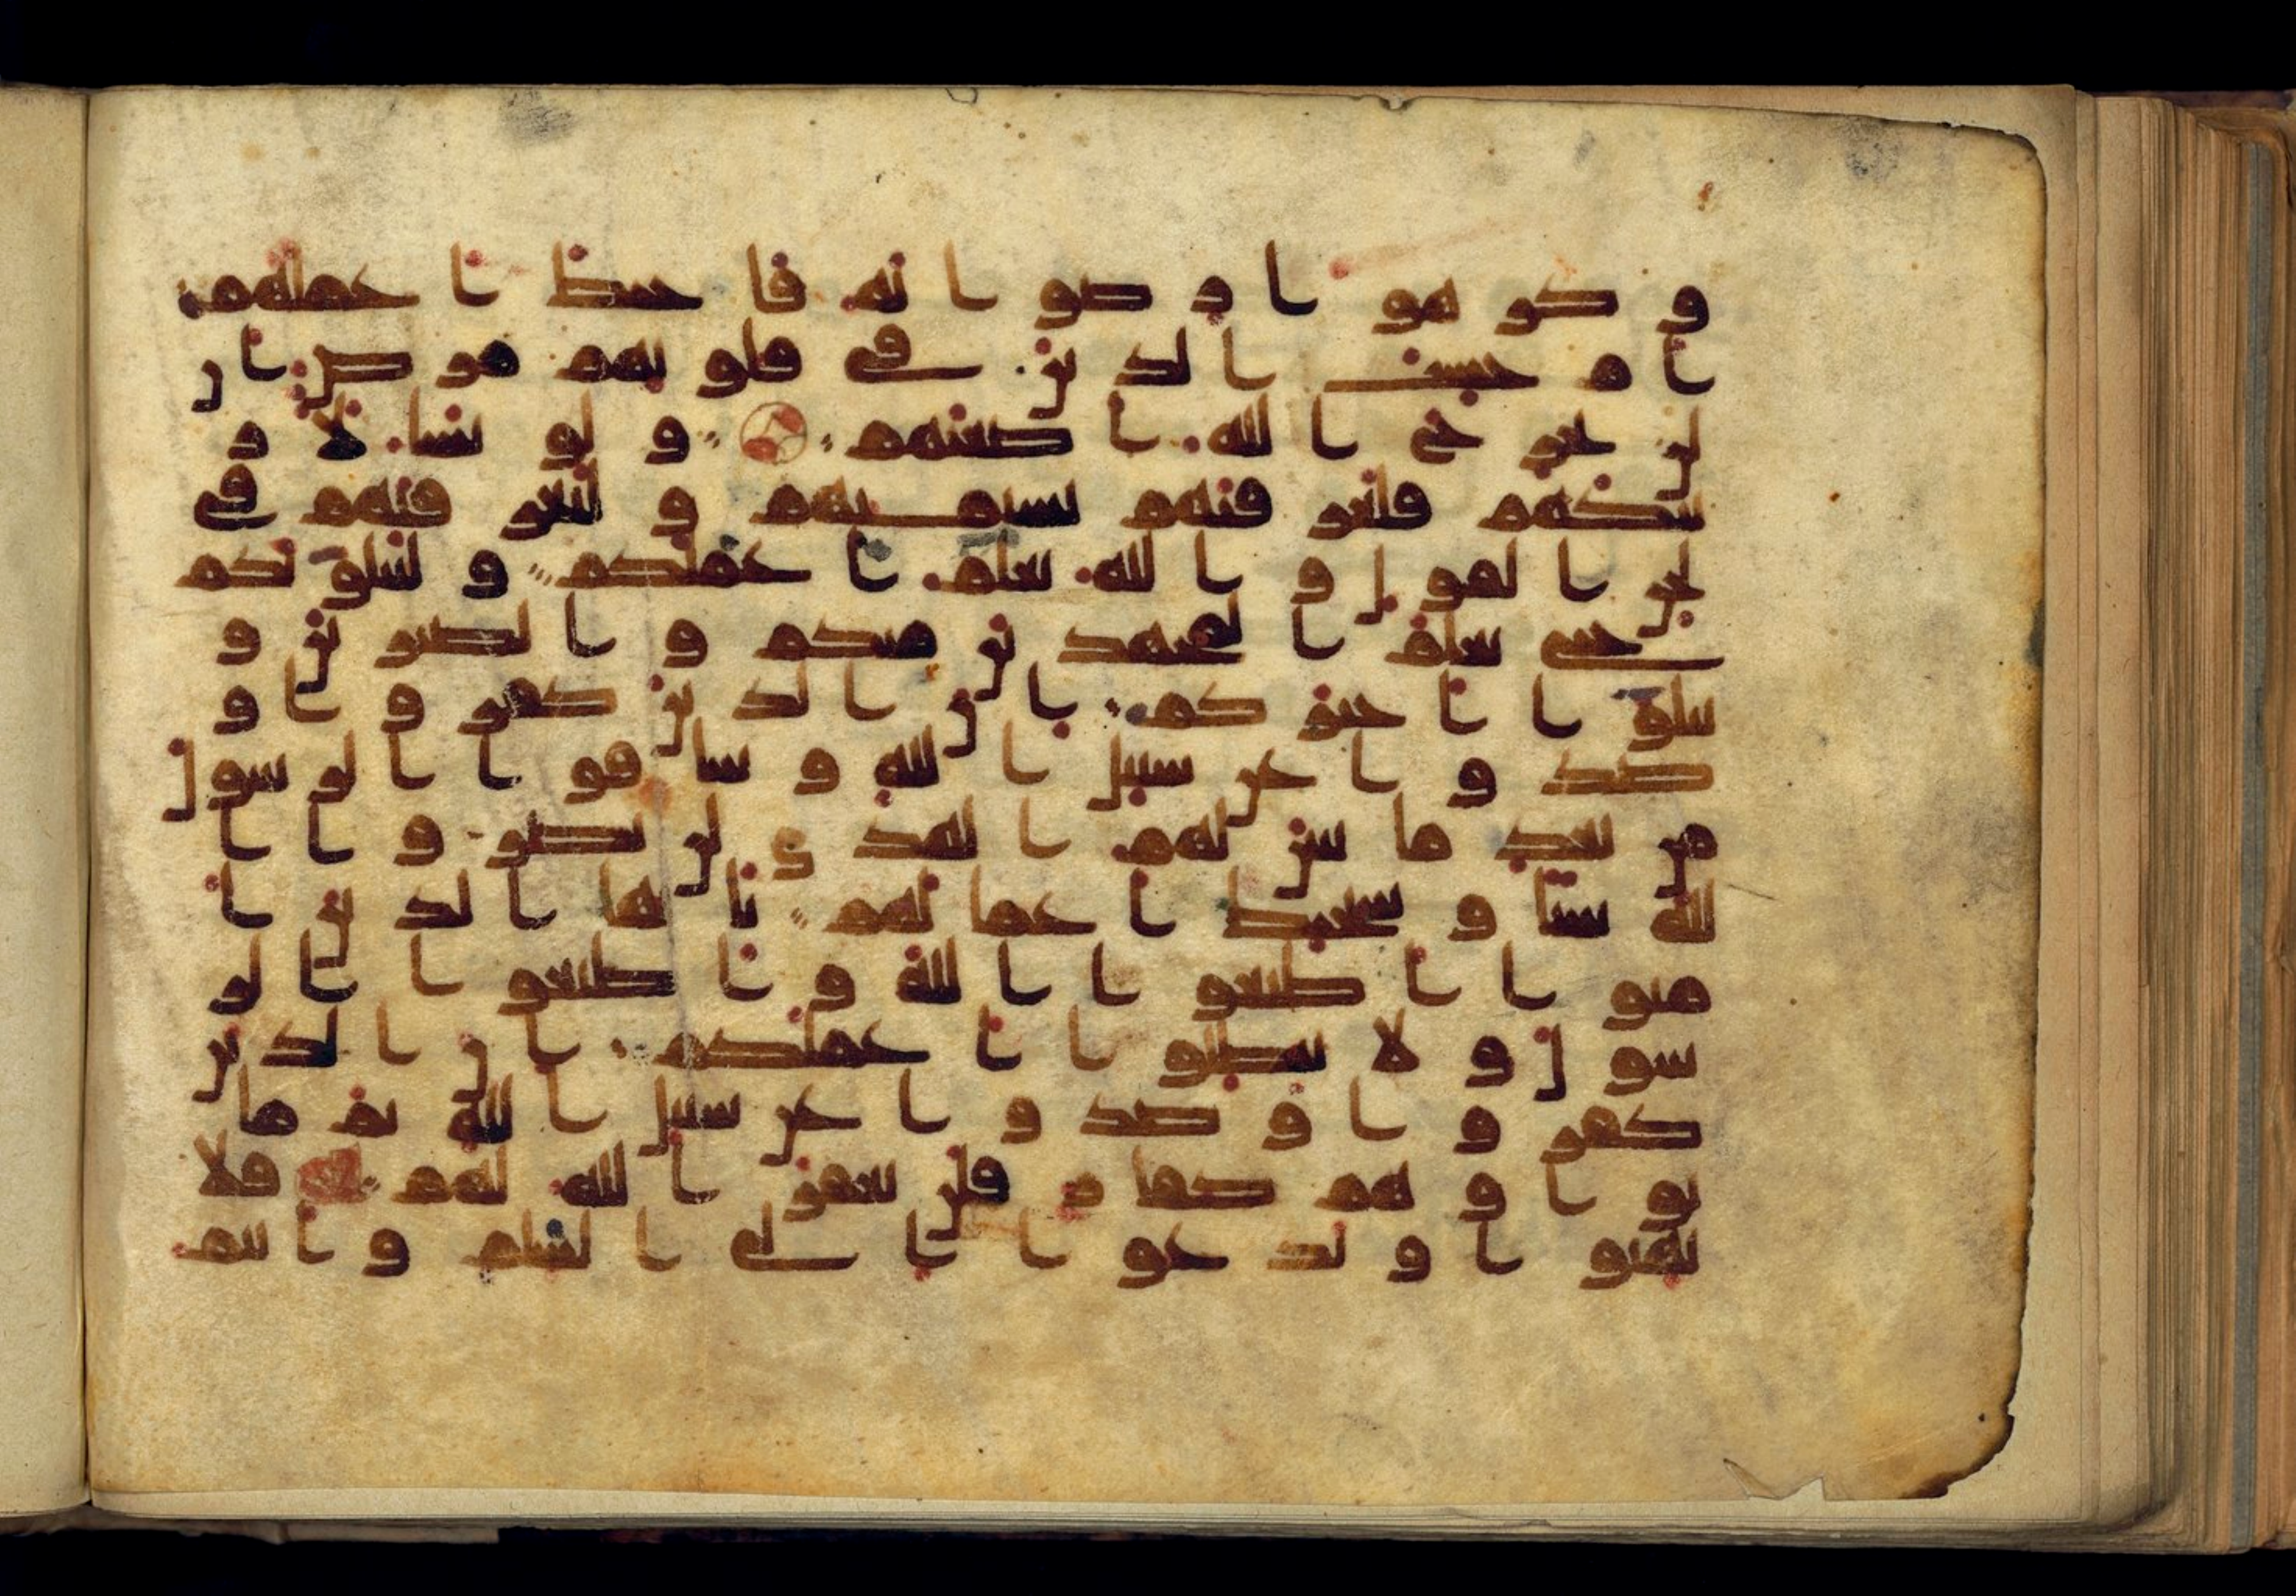 و كرهوا رضوانه فاحبط اعملهم
ام حسب الذين في قلوبهم مرض ان
لن يخرج الله اضغنهم و لو نشا لا ر
ينكهم فلعرفتهم بسيميهم و لتعرفنهم في
لحن القول و الله يعلم اعملكم و لنبلونكم
حتى نعلم المجهدين منكم و الصبرين و
نبلوا اخبركم ان الذين كفروا و
صدوا عن سبيل الله و شاقوا الرسول
من بعد ما تبين لهم الهدى لن يضروا ا
لله شيا و سيحبط اعمالهم يايها الذين ا
منوا اطيعوا الله و اطيعوا الر
سول و لا تبطلوا اعملكم ان الذين
كفروا و صدوا عن سبيل الله ثم ما
توا و هم كفار فلن يغفر الله لهم فلا
تهنوا و تدعوا الى السلم و انتم